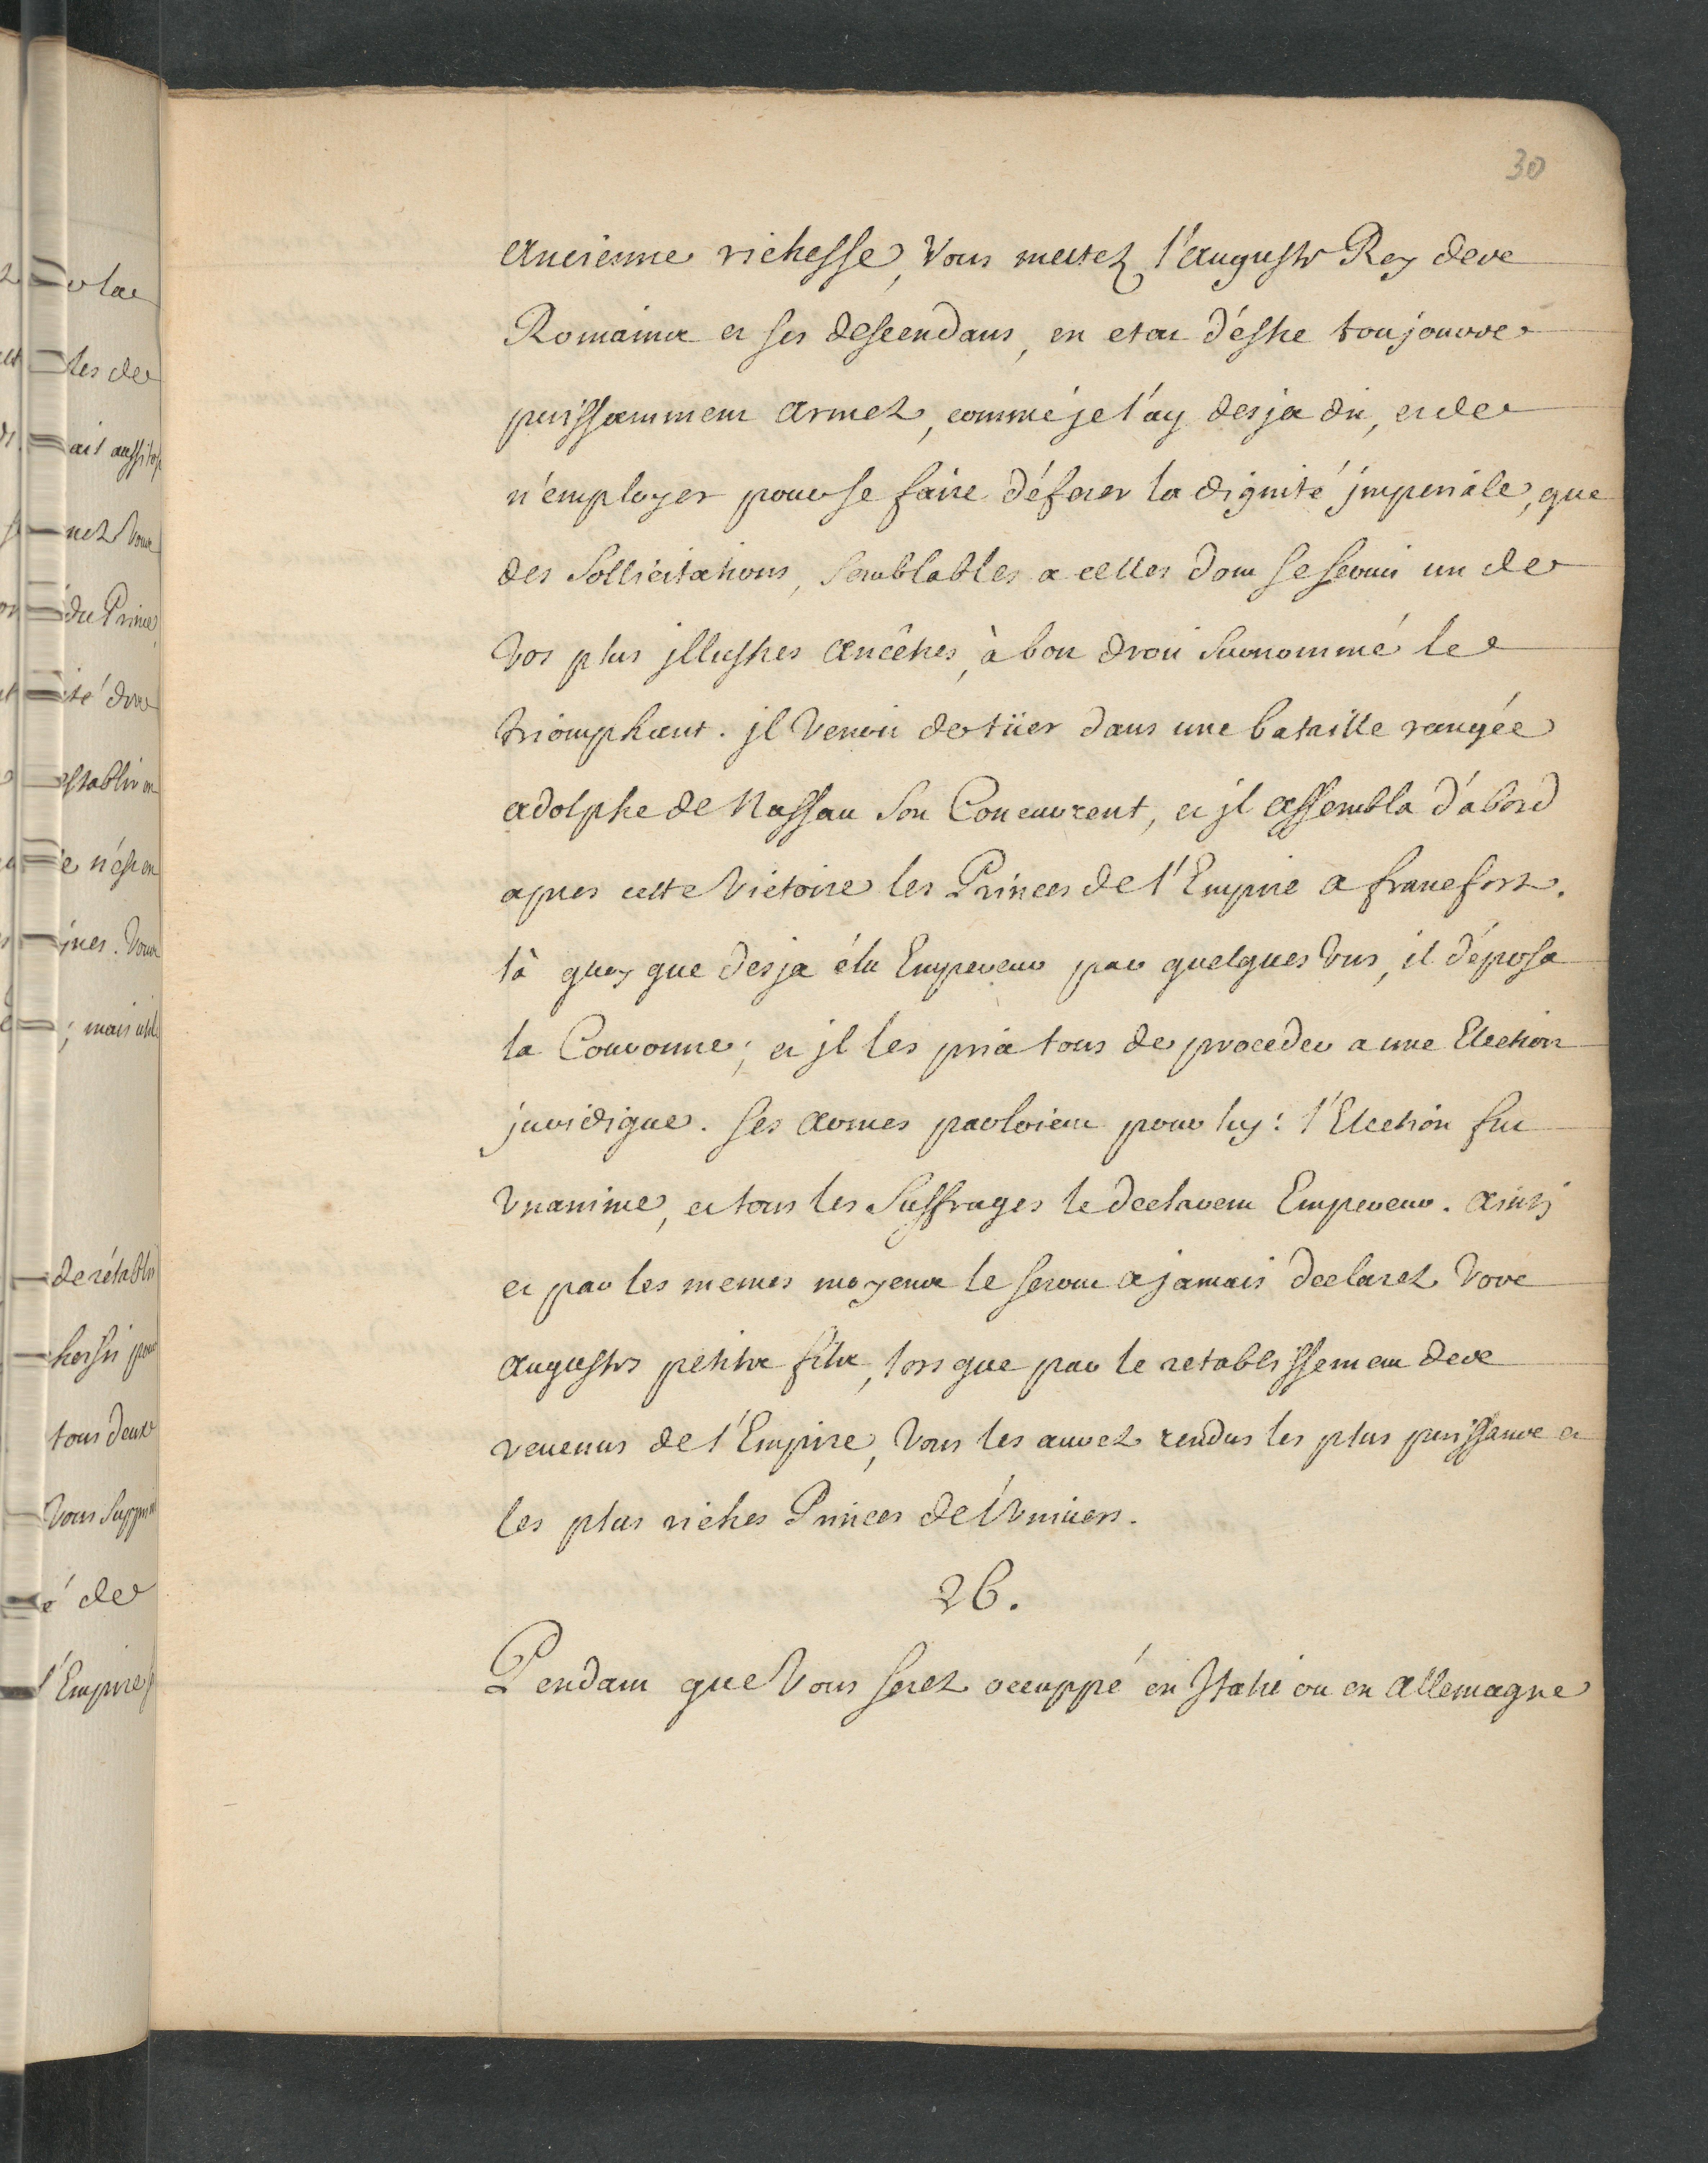 30
ancienne richesse, Vous mettez l'auguste Roy des
Romains et ses descendans, en etat d'estre toujours
puissamment armez, comme je l'ay desja dit, et de
n'employer pour se faire déferer la dignité jmperiale, que
des sollicitations, semblables a celles dont se servit un de
vos plus jllustres ancêtres, à bon droit surnommé le
triomphant. jl venoit de tüer dans une bataille rangée
adolphe de Nassau son Concurrent, et jl assembla d'abord
apres cette victoire les Princes de l'Empire a francfort.
là quoy que desja élu Empereur par quelques Vns, il déposa
la Couronne; et jl les pria tous de proceder a une Election
juridique. ses armes parloient pour luy: l'Election fut
Vnanime, et tous les suffrages le declarent Empereur. ainsi
et par les memes moyens le seront a jamais declarez Vos
augustes petits fils, lors que par le retablissement des
revenus de l'Empire, Vous les aurez rendus les plus puissans et
les plus riches Princes de l'Vnivers.
26.
Pendant que Vous serez occuppé en Italie ou en allemagne
la
les de
ait aussitost
nez Vous
du Prince
ité
establir en
e n'est en
Vous
; mais
de rétablir
tous deux
Vous
é de
l'Empire